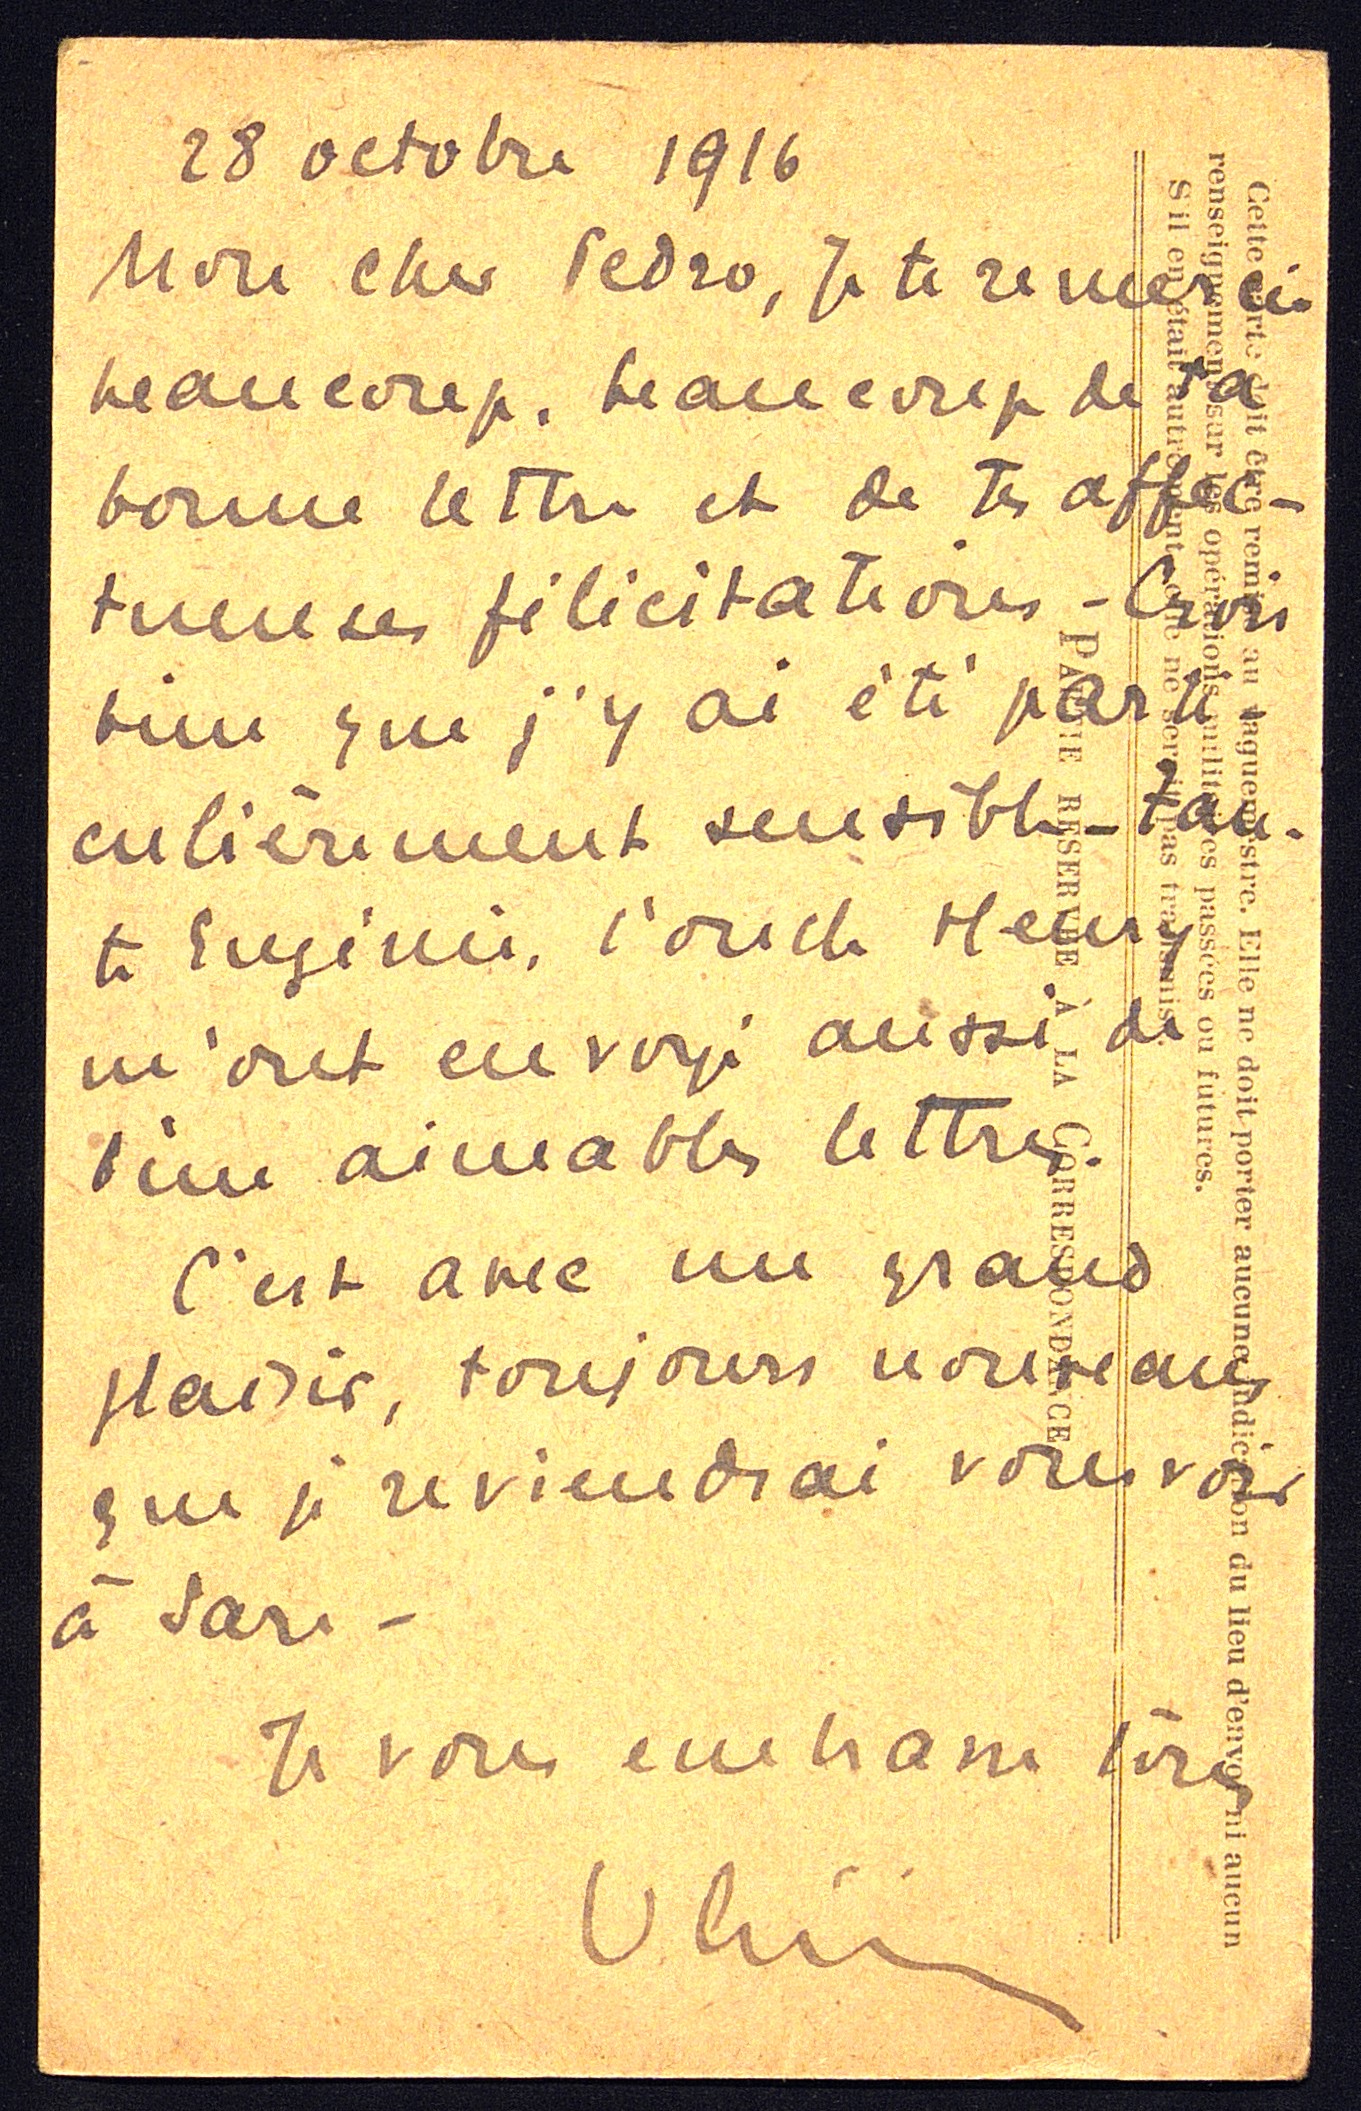 28 octobre 1916
Mon cher Pedro, Je te remercie
beaucoup, beaucoup de ta
bonne lettre et de tes affec-
tueuses félicitations - Crois
bien que j'y ai été parti-
culièrement sensible - Tan-
te Eugénie, l'oncle Henry
m'ont envoyé aussi de
bien aimables lettres.
C'est avec un grand
plaisir, toujours nouveau,
que je reviendrai vous voir
à Sare -
Je vous embrasse tous
Cette carte doit être remise au vaguemestre. Elle ne doit porter aucune indication du lieu d'envoi ni aucun
renseignement sur les opérations militaires passées ou futures.
S'il en était autrement, elle ne serait pas transmise.
PARTIE RÉSERVÉE À LA CORRESPONDANCE